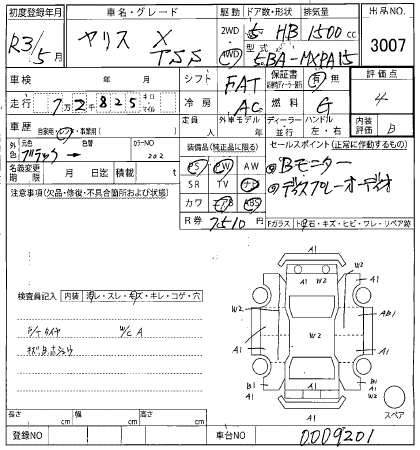 初度登録年月 車名・グレード 駆動 ドア数・形状 排気量 出品NO.
R3/5月 ヤリス X TSS 2WD 4WD 5 HB 1500cc 3007
型式 5BA-MXPA15
車検 年 月 シフト FAT 保証書 新車時ディーラー発行 有・無 評価点
走行 7万2千825 キロ・マイル 冷房 AC 燃料 G 4
定員 外車モデル ディーラー・並行 ハンドル 左・右 内装評価 B
車歴 自家用・レンタ・事業用( )
外色 元色 ブラック → 色替 カラーNO 202
装備品(純正品に限る) セールスポイント(正常に作動するもの)
名義変更期限 月 日迄 積載 t
PS PW AW ◎Bモニター
注意事項(欠品・修復・不具合箇所および状態)
SR TV ナビ ◎ディスプレーオーディオ
カワ エアB ABS
R券 7510円 Fガラス ト飛石・キズ・ヒビ・ワレ・リペア跡
A1
W2
A1
検査員記入 内装 汚レ・スレ・キズ・キレ・コゲ・穴
W2 W2 AB1
W/C A
A1 W2 A1
B1 B1
A1
A1 スペア
長さ cm 幅 cm 高さ cm
登録NO 車台NO 0009201